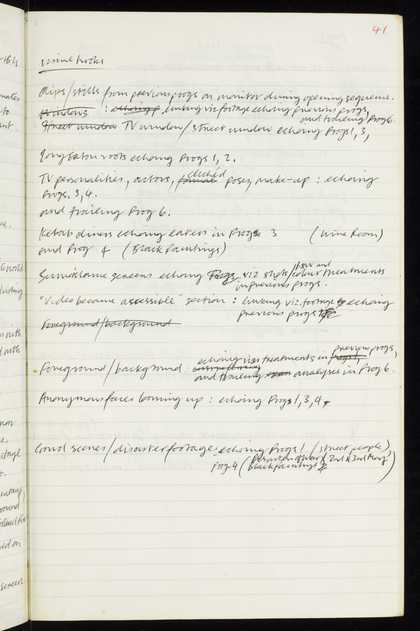 41
Clips/stills from previous progs on monitor during opening sequence.
windows : echoing, linking viz footage echoing previous progs,
and trailing Prog 6.
Street window TV window/street window echoing Progs 1, 3,
roots echoing Progs 1, 2.
TV personalities, actors, clichéd poses, make-up : echoing
Progs. 3, 4.
and trailing Prog 6.
Kebab diners echoing eaters in Progs 3 (Wine Room)
and Prog 4 (Black Paintings)
Surveillance screens echoing Progs viz style/ and colour treatments
in previous progs.
"Video became accessible" section : linking viz. footage echoing
previous progs
Foreground/background
Foreground/background echoing viz treatments in previous progs,
and trailing analyses in Prog 6.
Anonymous faces looming up : echoing Progs 1, 3, 4,
Crowd scenes/disaster footage : echoing Progs 1 (street people)
Prog 4 (black paintings, 2nd & 3rd May)